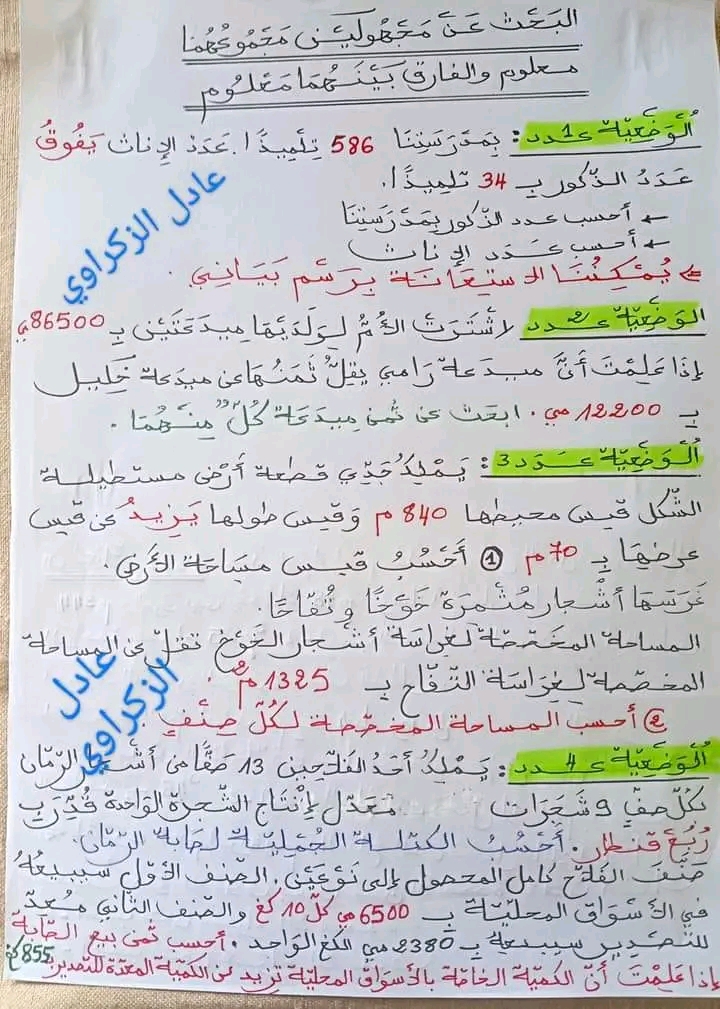 البَحْث عَنْ مَجْهُولَيْنِ مَجْمُوعُهُمَا
معلوم والفارق بَيْنَهُمَا مَعْلُوم
الْوَضْعِيّة عـدد 1: بِمَدْرَسَتِنَا 586 تِلْمِيذًا. عَدَدُ الإِناث يَفُوقُ
عَدَدَ الذّكور بـ 34 تلميذًا.
← أحسب عدد الذّكور بِمَدْرَسَتِنَا
← أحسب عَدَد الإناث
⇐ يُمْكِنُنَا الاستِعَانَة بِرَسْم بَيَانِي.
عادل الزكراوي
الوَضْعِيّة عـدد 2 اشْتَرَت الأمُّ لِوَلَدَيْهَا مِيدَعَتَيْنِ بِـ 86500 مي
إِذَا عَلِمْتَ أَنَّ مِيدَعة رَامي يَقِلُّ ثَمَنُهَا عن ميدَعة خَلِيل
بِـ 12200 مي. ابْحَث عن ثَمن مِيدَعَة كُلٍّ مِنْهُمَا.
الْوَضْعِيّة عـدد 3: يَمْلِكُ جَدِّي قطعة أَرْض مستطيلة
الشّكل قيس محيطها 840 م وَقيس طولها يَزِيدُ عَن قيس
عرضِهَا بِـ 70 م ① أَحْسُبُ قيس مسَاحَة الأَرْض.
غَرَسَهَا أَشْجار مُثْمِرَة خَوْخًا وتُفّاحًا.
المساحة المخصّصة لغراسة أشجار الخَوْخ تقلّ عن المساحة
المخصصة لِغِرَاسَة التّفّاح بـ 1325 م²
② أحسب المساحة المخصّصة لكُلّ صِنْفٍ.
عادل الزكراوي
الْوَضْعِيّة عـدد 4: يَمْلِكُ أَحَدُ الفَلاّحِين 13 صَفًّا من أَشْجار الرّمّان
بكُلّ صفٍّ 9 شَجَرَات معدّل إِنْتَاج الشّجرة الوَاحدة قُدِّرَ بِـ
رُبُع قنطار. أَحْسُبُ الكتلة الجُمْلِيّة لصَابة الرّمّان.
صَنّفَ الفَلاّح كامل المحصول إلى نَوْعَيْنِ. الصّنف الأوّل سيبيعُهُ
في الأسْواق المحلّيّة بِـ 6500 مي كلّ 10 كغ والصّنف الثّاني مُعدّ
للتّصدير سيبيعه بـ 2380 مي الكغ الواحد. أحسب ثمن بيع الصّابة
إذا عَلِمْتَ أَنّ الكمّيّة الخاصّة بالأسوَاق المحليّة تزيد عن الكمّيّة المعدّة للتّصدير بـ 855 كغ